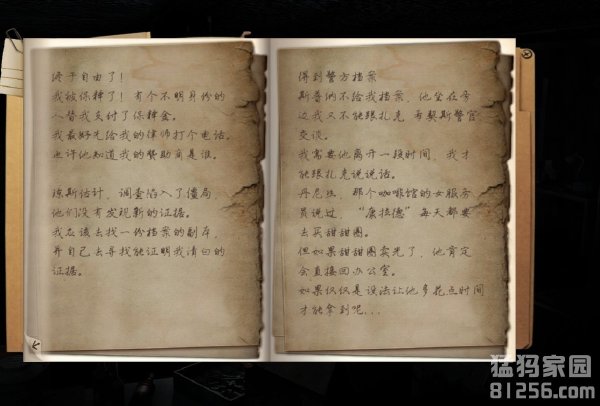 终于自由了!
我被保释了! 有个不明身份的
人替我支付了保释金。
我最好先给我的律师打个电话。
也许他知道我的赞助商是谁。
琼斯估计，调查陷入了僵局
他们没有发现新的证据。
我应该去找一份档案的副本，
并自己去寻找能证明我清白的
证据。
得到警方档案
斯普纳不给我档案，他坐在旁
边我又不能跟扎克 布契斯警官
交谈。
我需要他离开一段时间，我才
能跟扎克说说话。
丹尼丝，那个咖啡馆的女服务
员说过，“康拉德”每天都要
去买甜甜圈。
但如果甜甜圈卖光了，他肯定
会直接回办公室。
如果仅仅是设法让他多花点时间
才能拿到呢...
猛犸家园
81256.com